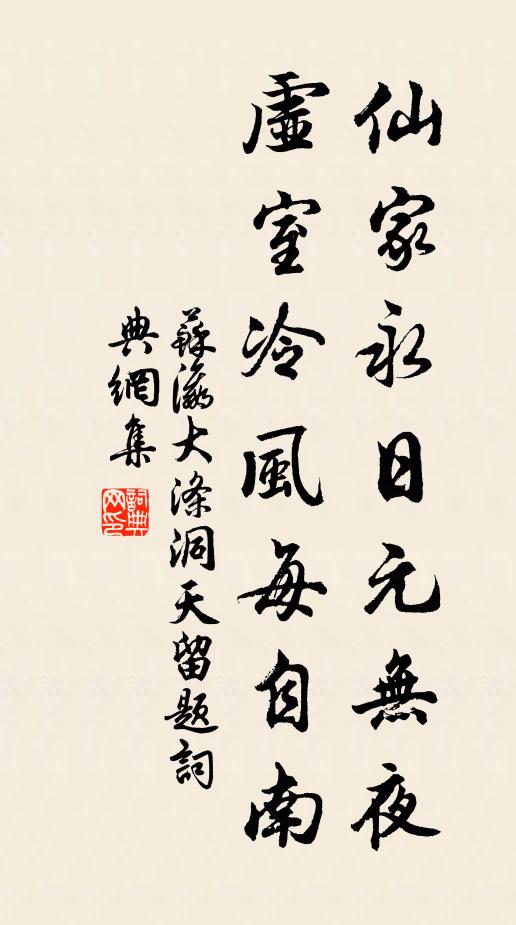 仙家永日元無夜
虛室冷風每自南
蘇瀛大滌洞天留題詞
典網集
詞典网印